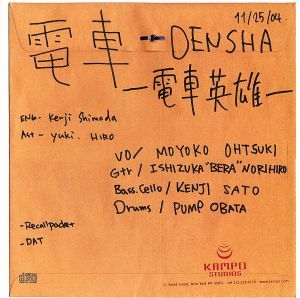 11/25/04.
電車 - DENSHA
- 電車英雄 -
ENG- Kenji Shimoda
Ast - yuki. HIRO
VO/ MOYOKO OHTSUKI
Gtr/ ISHIZUKA "BERA" NORIHIRO
Bass. Cello/ KENJI SATO
Drums/ PUMP OBATA
- Recall packet
- DAT
KAMPO
STUDIOS